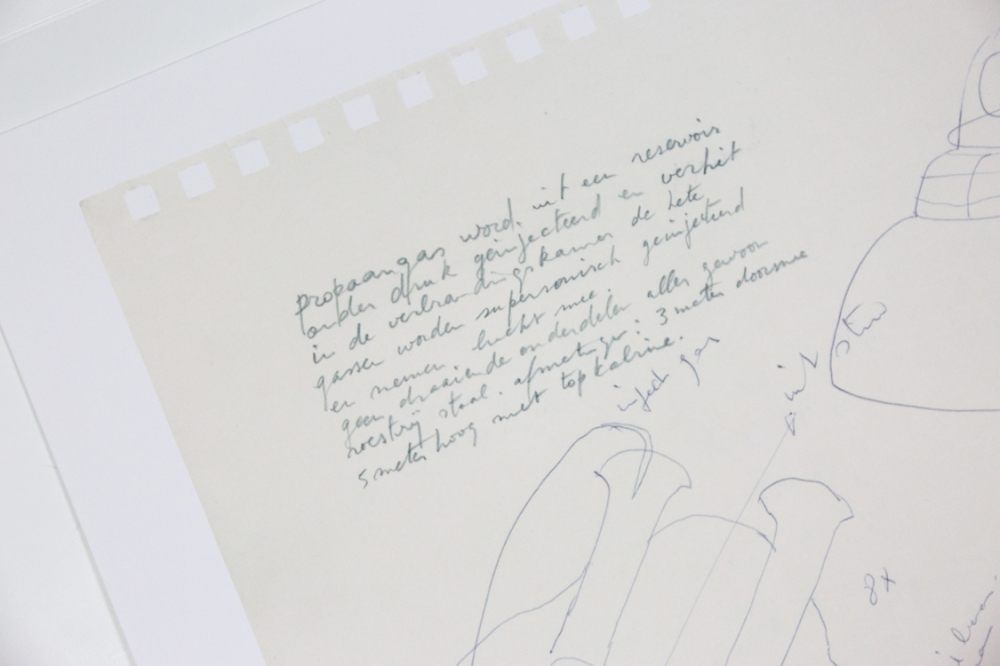 propaangas word. uit een reservoir
onder druk geinjecteerd en verhit
in de verbrandingskamer de hete
gassen worden supersonisch geinjecteerd
en nemen lucht mee.
geen draaiende onderdelen alles gewoon
roestvrij staal. afmetingen: 3 meter doorsnee
5 meter hoog met topkabine.
inject gas
uit
8x